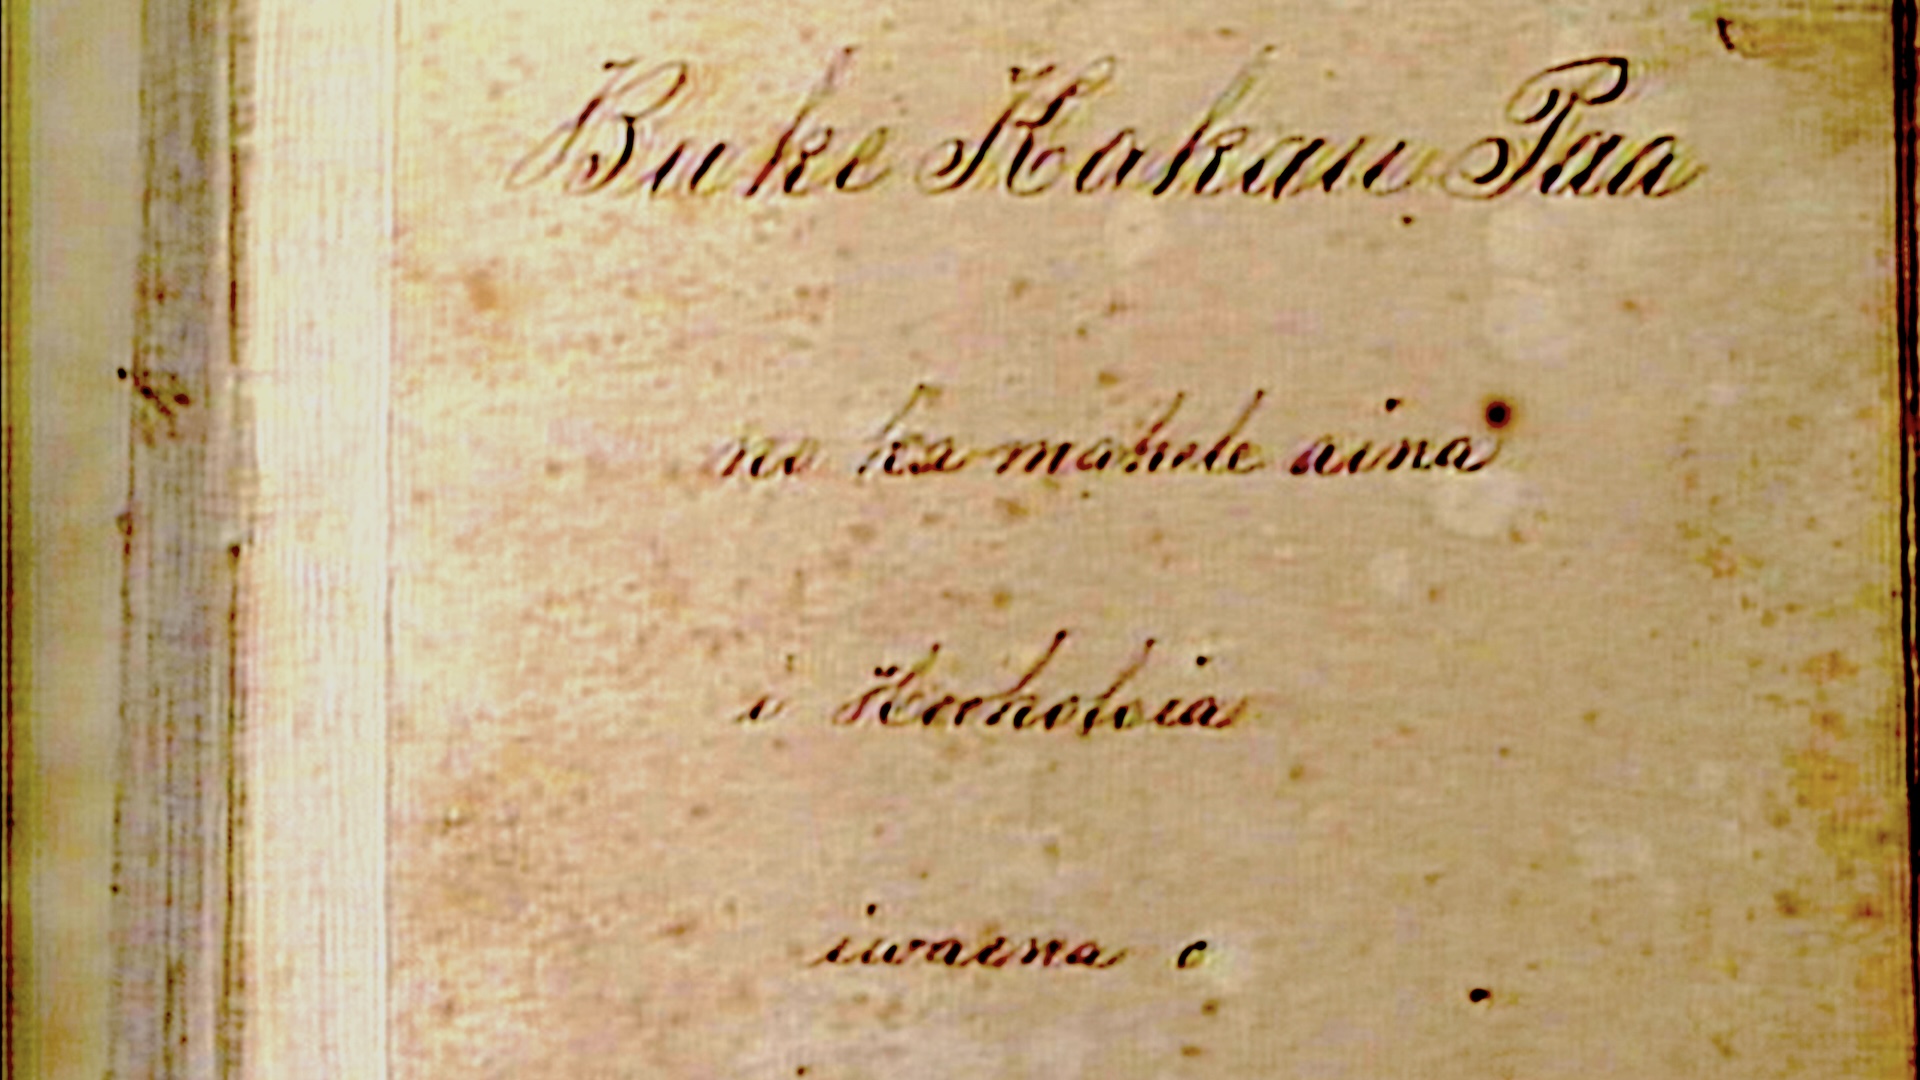 Buke Kakau Paa
no ka mahele aina
i Hooholoia
iwaena o